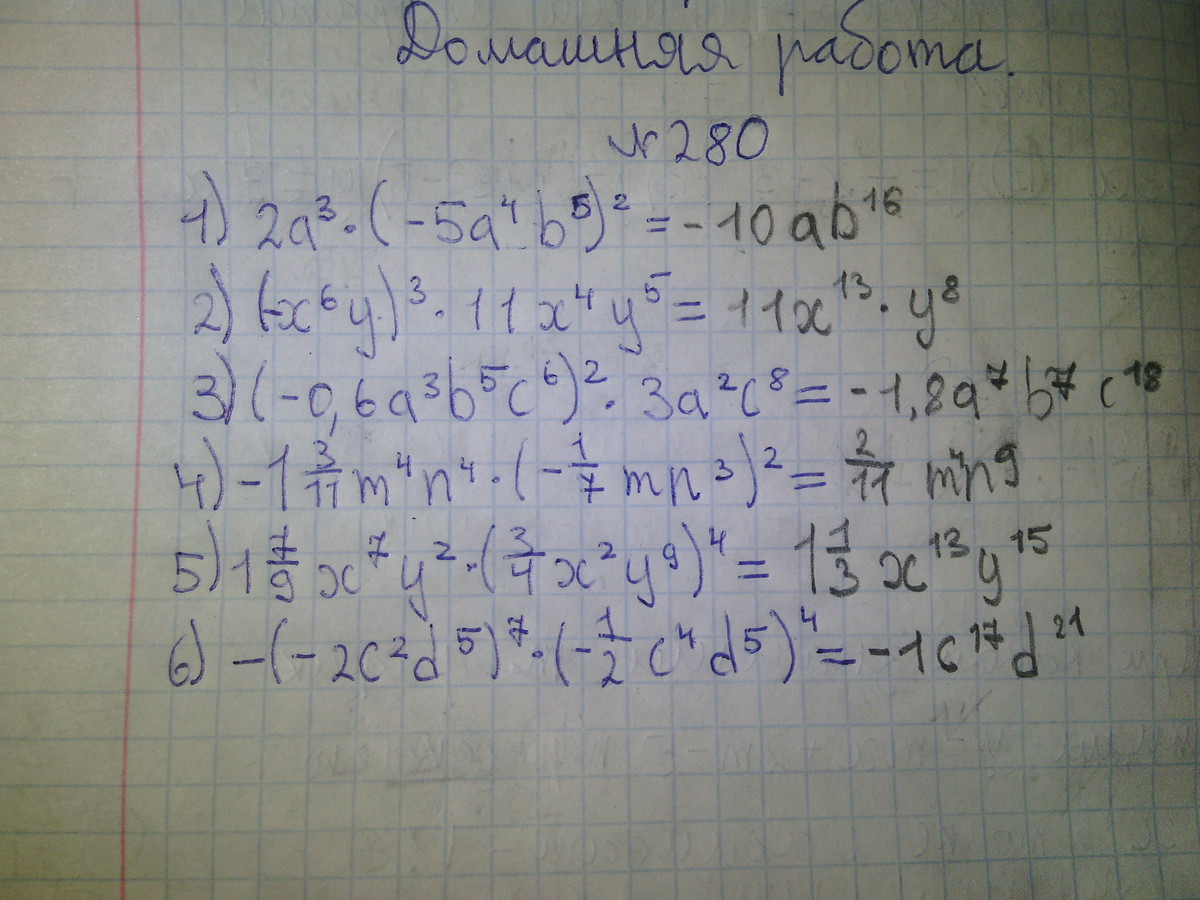 Домашняя работа.
№ 280
1) 2a³·(-5a⁴b⁵)² = -10ab¹⁶
2) (-x⁶y)³·11x⁴y⁵ = 11x¹³·y⁸
3) (-0,6a³b⁵c⁶)²·3a²c⁸ = -1,8a⁷b⁷c¹⁸
4) -1 3/11 m⁴n⁴·(-1/7 mn³)² = 2/11 m⁴n⁹
5) 1 7/9 x⁷y²·(3/4 x²y⁹)⁴ = 1 1/3 x¹³y¹⁵
6) -(-2c²d⁵)⁷·(-1/2 c⁴d⁵)⁴ = -1c¹⁷d²¹